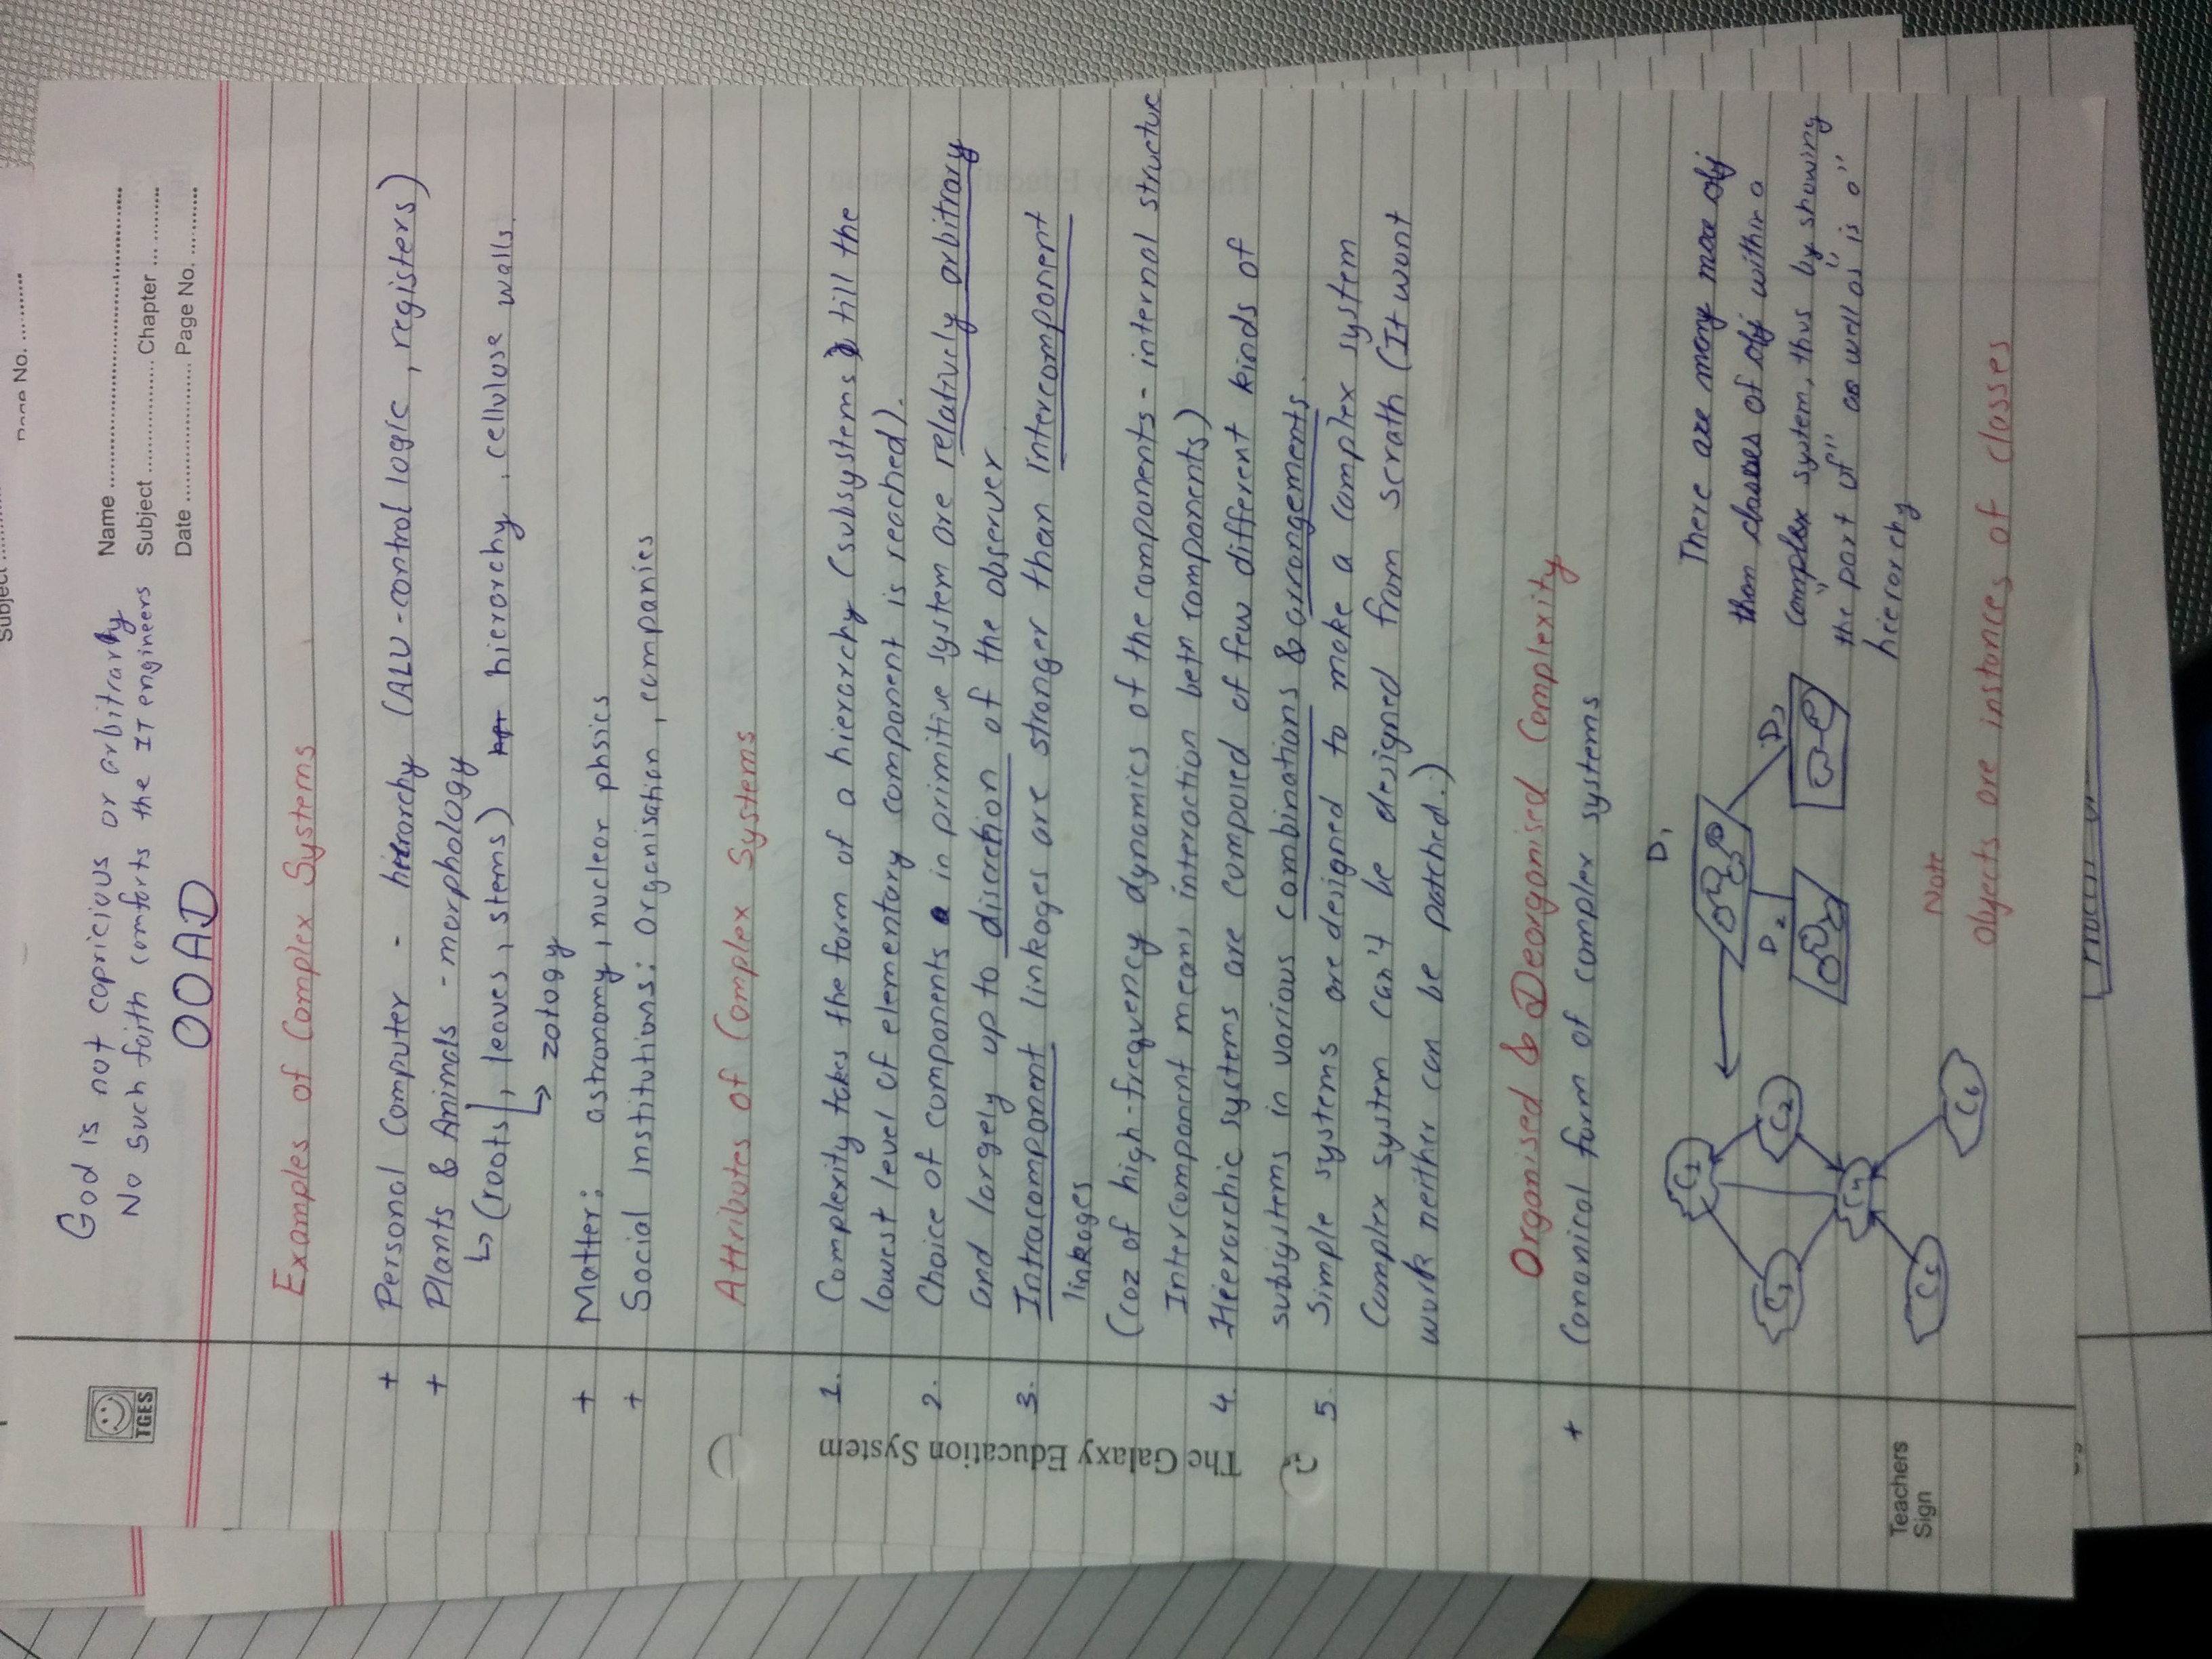 Page No. ............
Subject ............
God is not capricious or arbitrarly
No such faith comforts the IT engineers
OOAD
Name ............
Subject ............ Chapter ............
Date ............ Page No. ............
TGES
Examples of Complex Systems
+ Personal Computer - hierarchy (ALU-control logic, registers)
+ Plants & Animals - morphology
↳ (roots, leaves, stems) hierarchy, cellulose walls.
↳ zology
+ Matter: astronomy, nuclear phsics
+ Social Institutions: Organisation, companies
Attributes of Complex Systems
1. Complexity takes the form of a hierarchy (subsystems till the
lowest level of elementary component is reached).
2. Choice of components in primitive system are relatively arbitrary
and largely up to discretion of the observer
3. Intracomponent linkages are stronger than Intercomponent
linkages
(coz of high-frequency dynamics of the components - internal structure
Intercomponent means interaction betn components)
4. Hierarchic systems are composed of few different kinds of
subsystems in various combinations & arrangements.
5. Simple systems are designed to make a complex system
Complex system can't be designed from scrath (It wont
work neither can be patched.)
Organised & Deorganised Complexity
+ Canonical form of complex systems
C1
C2
C3
C4
C5
C6
D1
D2
D3
There are many more obj
than classes of obj within a
complex system, thus by showing
the "part of" as well as "is a"
hierarchy
Note
Objects are instances of classes
The Galaxy Education System
Teachers
Sign